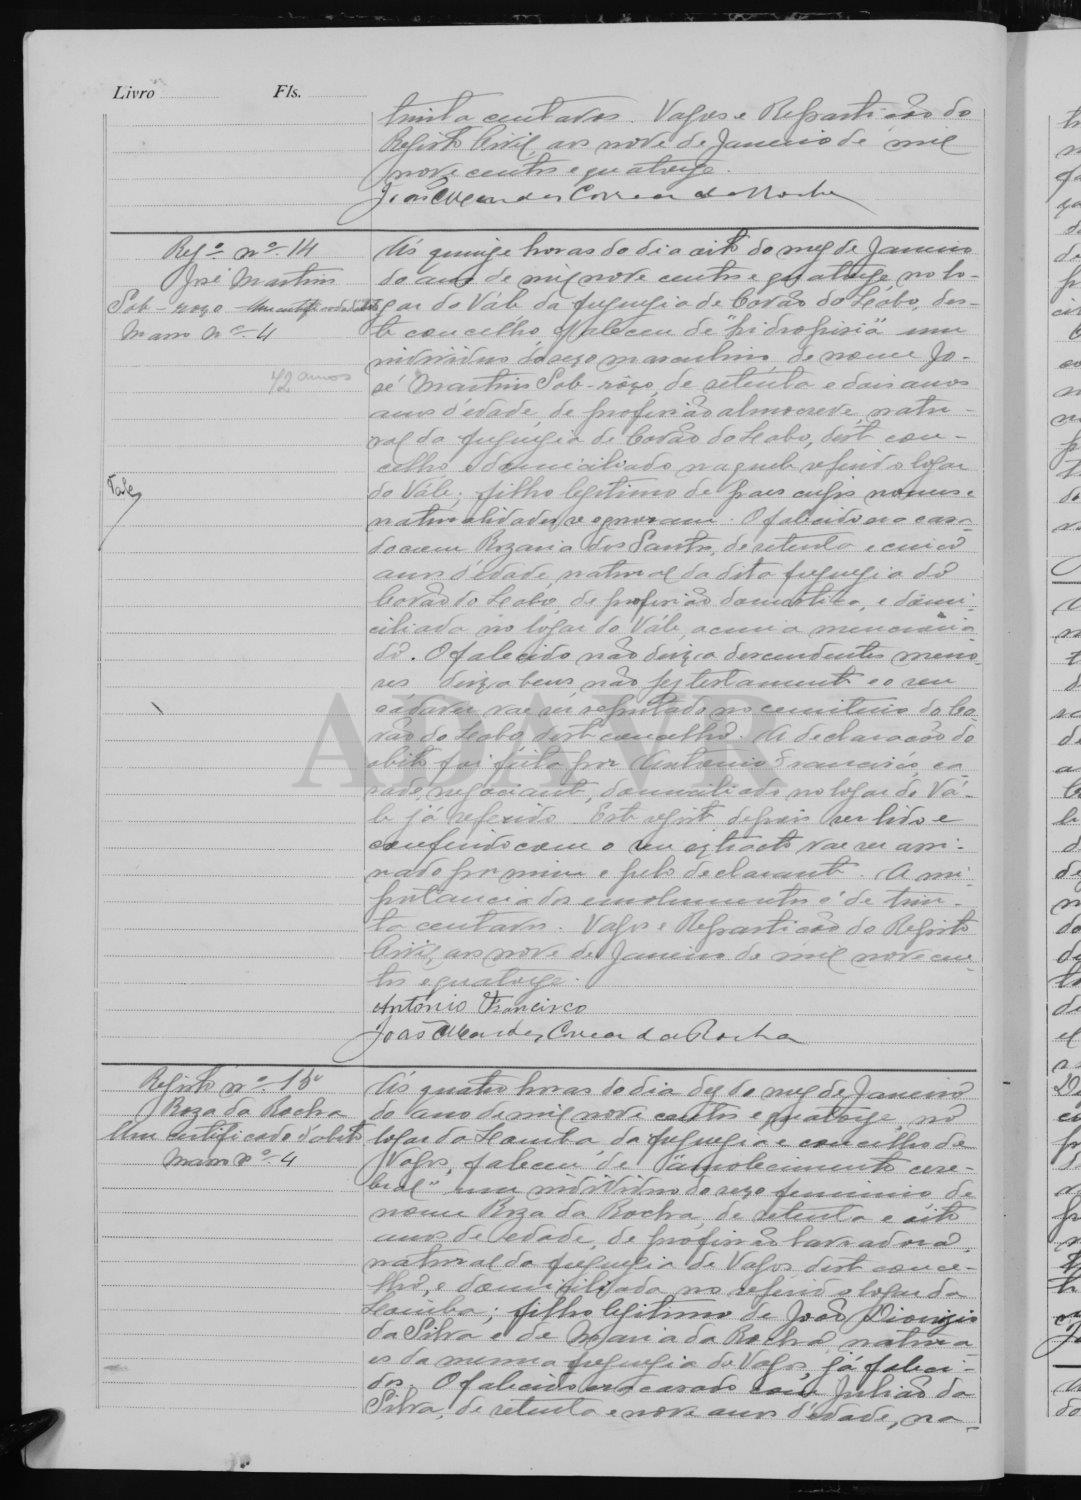 Livro Fls.
trinta centavos. Vagos e Repartição do
Registo Civil, aos nove de Janeiro de mil
novecentos e quatorze.
João Mendes Correia da Rocha
Regº nº 14
José Martins
Sob-rozo
Maço Nº 4
72 annos
Vale
Ás quinze horas do dia oito do mez de Janeiro
do ano de mil nove centos e quatorze, no lo-
gar do Vále da freguezia de Covão do Lobo, des-
te concelho, faleceu de "hidropisia" um
individuo do sexo masculino de nome Jo-
sé Martins Sob-rôzo, de setenta e dois anos
anos d'edade, de profissão almocreve, natu-
ral da freguezia de Covão do Lobo, deste con-
celho e domiciliado naquele referido logar
do Vále; filho legitimo de paes cujos nomes e
naturalidades se ignoram. O falecido era casa-
do com Rozaria dos Santos, de setenta e cinco
anos d'edade, natural da dita freguezia do
Covão do Lobo, de profissão domestica, e domi-
ciliada no logar do Vále, acima menciona-
do. O falecido não deixa descendentes meno-
res, deixa bens, não fez testamento e o seu
cadaver vae ser sepultado no cemiterio do Co-
vão do Lobo, deste concelho. A declaração do
obito foi feita por Antonio Francisco, ca-
sado, negociante, domiciliado no logar do Vá-
le já referido. Este registo depois ser lido e
conferido com o seu extracto vae ser assi-
nado por mim e pelo declarante. A im-
portancia dos emolumentos é de trin-
ta centavos. Vagos e Repartição do Registo
Civil, aos nove de Janeiro de mil nove cen-
tos e quatorze.
António Francisco
João Mendes Correia da Rocha
ADAVR
Registo nº 15
Roza da Rocha
Um certificado d'obito
Maço nº 4
Ás quatro horas do dia dez do mez de Janeiro
do ano de mil nove centos e quatorze, no
logar da Lomba, da freguezia e concelho de
Vagos, faleceu de "amolecimento cere-
bral" um individuo do sexo feminino de
nome Roza da Rocha, de setenta e oito
anos de edade, de profissão lavradora,
natural da freguezia de Vagos, deste conce-
lho, e domiciliada no referido logar da
Lomba; filho legitimo de João Dionizio
da Silva e de Maria da Rocha, natura-
es da mesma freguezia de Vagos, já faleci-
dos. O falecido era casado com Julião da
Silva, de setenta e nove anos d'edade, na-